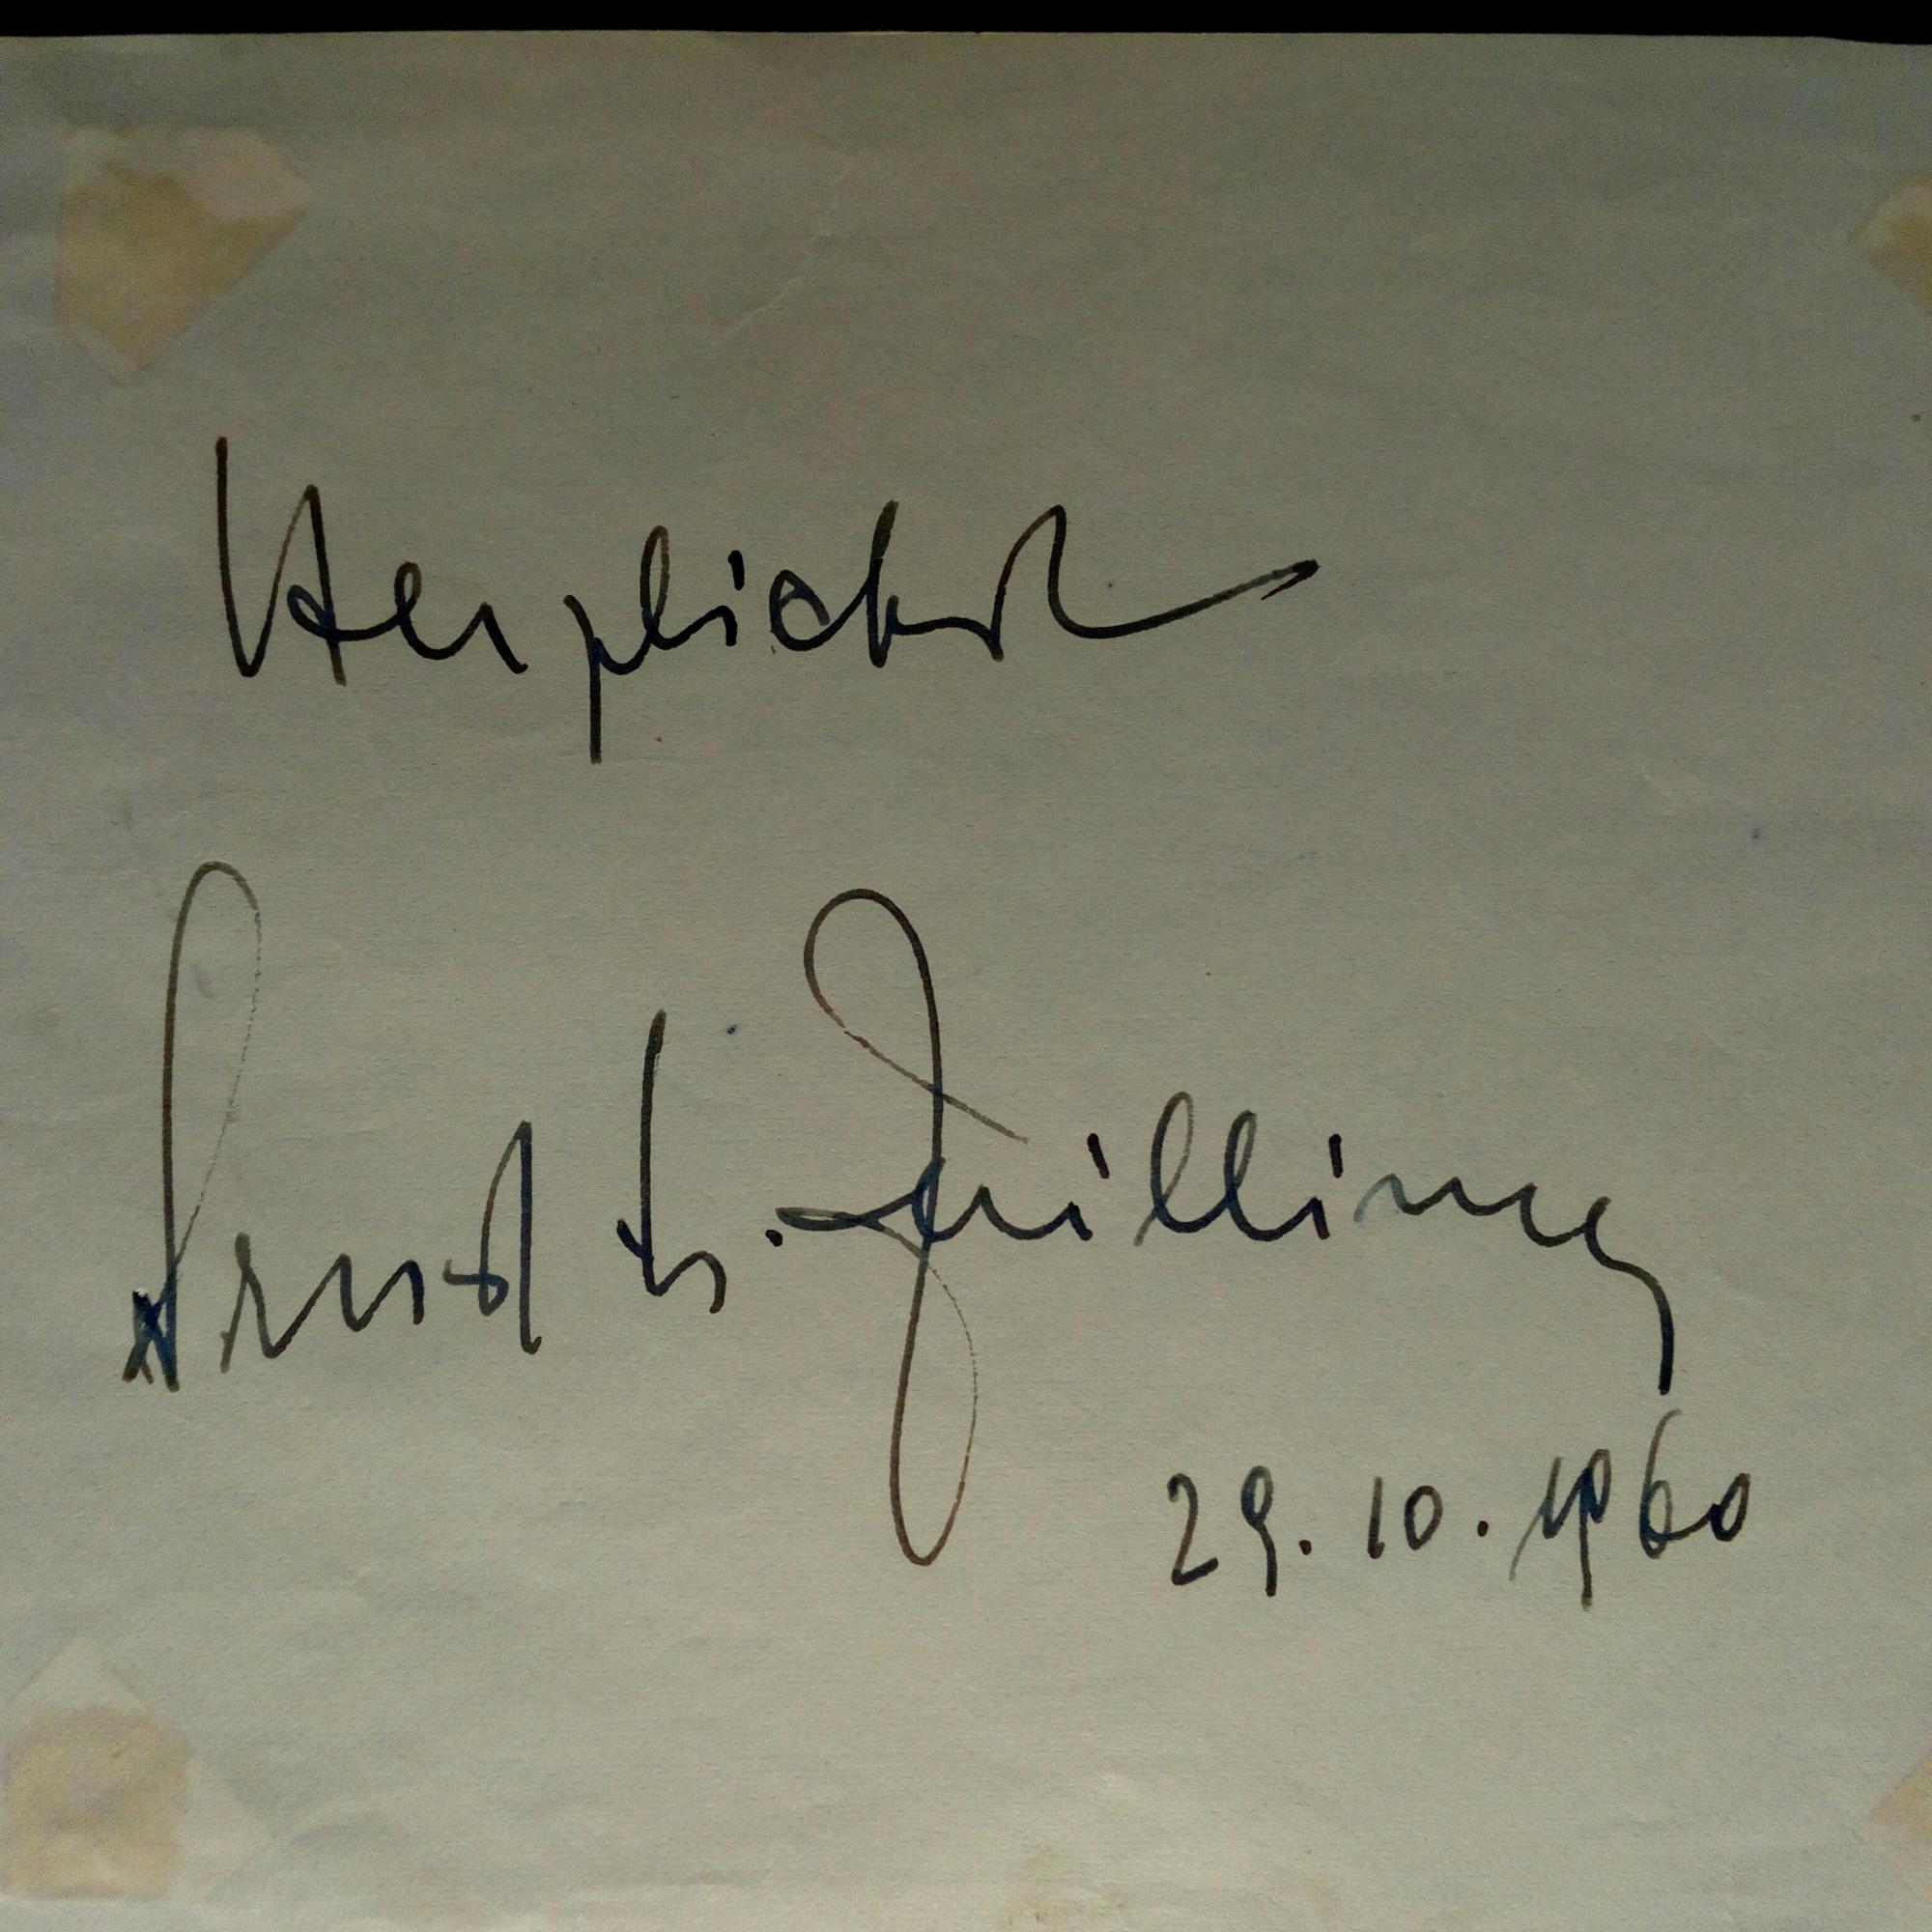 Herzlichst
Ernst A. Zwilling
29. 10. 1960